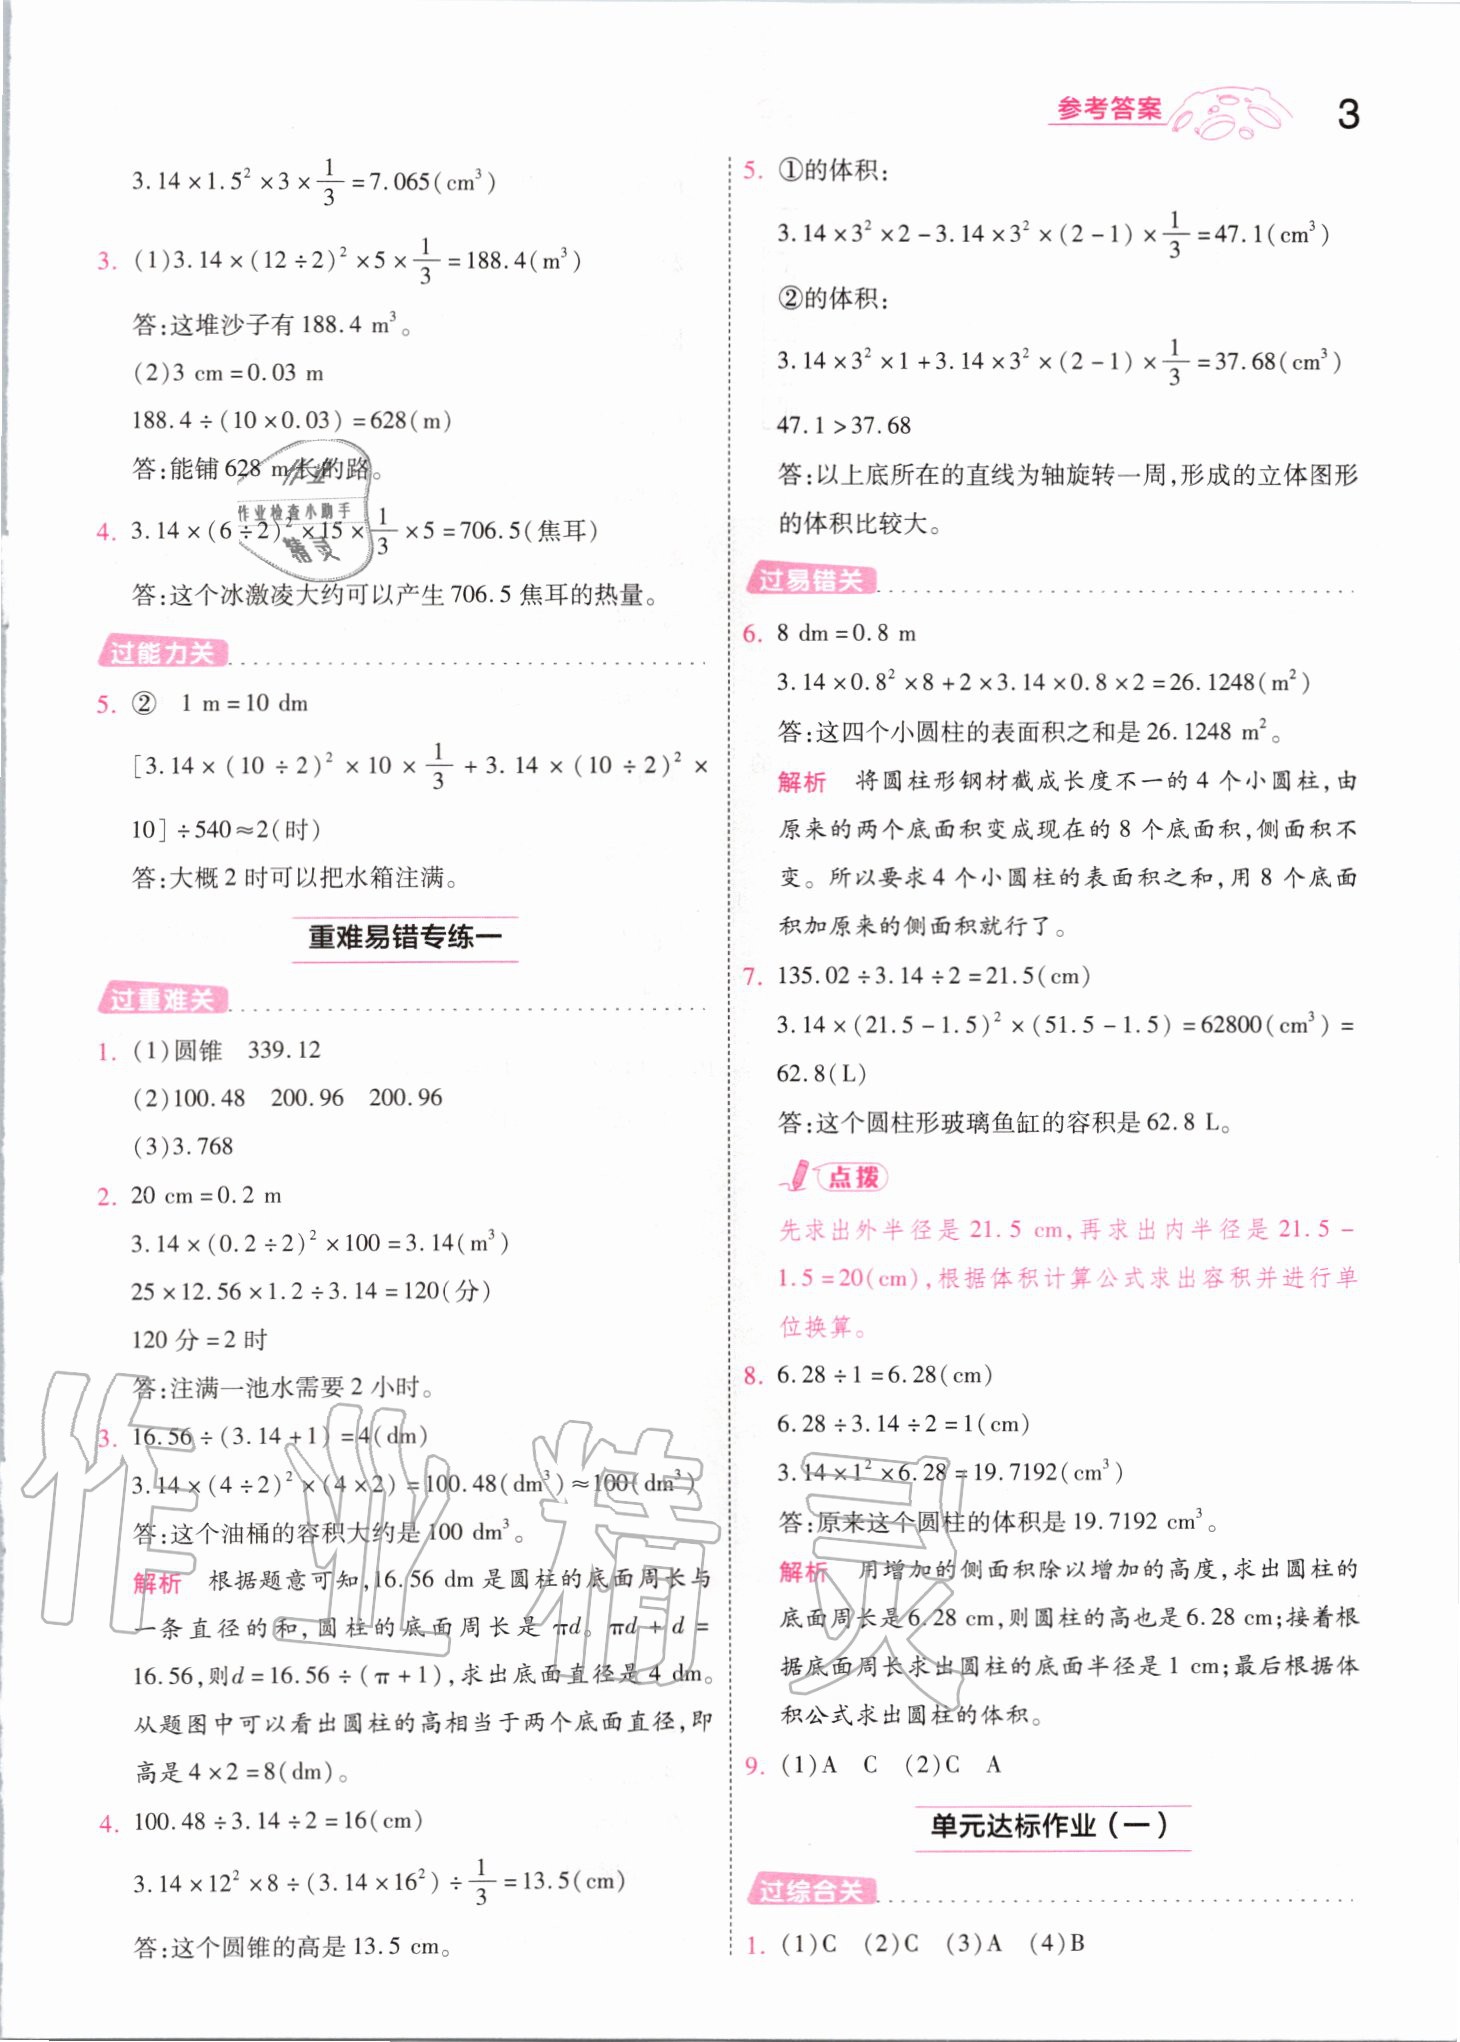 参考答案 3
3.14×1.5²×3×1/3=7.065(cm³)
3. (1)3.14×(12÷2)²×5×1/3=188.4(m³)
答:这堆沙子有188.4 m³。
(2)3 cm=0.03 m
188.4÷(10×0.03)=628(m)
答:能铺628 m长的路。
作业
作业检查小助手
精灵
4. 3.14×(6÷2)²×15×1/3×5=706.5(焦耳)
答:这个冰激凌大约可以产生706.5焦耳的热量。
过能力关
5. ② 1 m=10 dm
[3.14×(10÷2)²×10×1/3+3.14×(10÷2)²×
10]÷540≈2(时)
答:大概2时可以把水箱注满。
重难易错专练一
过重难关
1. (1)圆锥 339.12
(2)100.48 200.96 200.96
(3)3.768
2. 20 cm=0.2 m
3.14×(0.2÷2)²×100=3.14(m³)
25×12.56×1.2÷3.14=120(分)
120分=2时
答:注满一池水需要2小时。
3. 16.56÷(3.14+1)=4(dm)
3.14×(4÷2)²×(4×2)=100.48(dm³)≈100(dm³)
答:这个油桶的容积大约是100 dm³。
解析 根据题意可知,16.56 dm是圆柱的底面周长与
一条直径的和,圆柱的底面周长是πd。πd+d=
16.56,则d=16.56÷(π+1),求出底面直径是4 dm。
从题图中可以看出圆柱的高相当于两个底面直径,即
高是4×2=8(dm)。
4. 100.48÷3.14÷2=16(cm)
3.14×12²×8÷(3.14×16²)÷1/3=13.5(cm)
答:这个圆锥的高是13.5 cm。
5. ①的体积:
3.14×3²×2-3.14×3²×(2-1)×1/3=47.1(cm³)
②的体积:
3.14×3²×1+3.14×3²×(2-1)×1/3=37.68(cm³)
47.1>37.68
答:以上底所在的直线为轴旋转一周,形成的立体图形
的体积比较大。
过易错关
6. 8 dm=0.8 m
3.14×0.8²×8+2×3.14×0.8×2=26.1248(m²)
答:这四个小圆柱的表面积之和是26.1248 m²。
解析 将圆柱形钢材截成长度不一的4个小圆柱,由
原来的两个底面积变成现在的8个底面积,侧面积不
变。所以要求4个小圆柱的表面积之和,用8个底面
积加原来的侧面积就行了。
7. 135.02÷3.14÷2=21.5(cm)
3.14×(21.5-1.5)²×(51.5-1.5)=62800(cm³)=
62.8(L)
答:这个圆柱形玻璃鱼缸的容积是62.8 L。
点拨
先求出外半径是21.5 cm,再求出内半径是21.5-
1.5=20(cm),根据体积计算公式求出容积并进行单
位换算。
8. 6.28÷1=6.28(cm)
6.28÷3.14÷2=1(cm)
3.14×1²×6.28=19.7192(cm³)
答:原来这个圆柱的体积是19.7192 cm³。
解析 用增加的侧面积除以增加的高度,求出圆柱的
底面周长是6.28 cm,则圆柱的高也是6.28 cm;接着根
据底面周长求出圆柱的底面半径是1 cm;最后根据体
积公式求出圆柱的体积。
9. (1)A C (2)C A
单元达标作业(一)
过综合关
1. (1)C (2)C (3)A (4)B
作业精灵